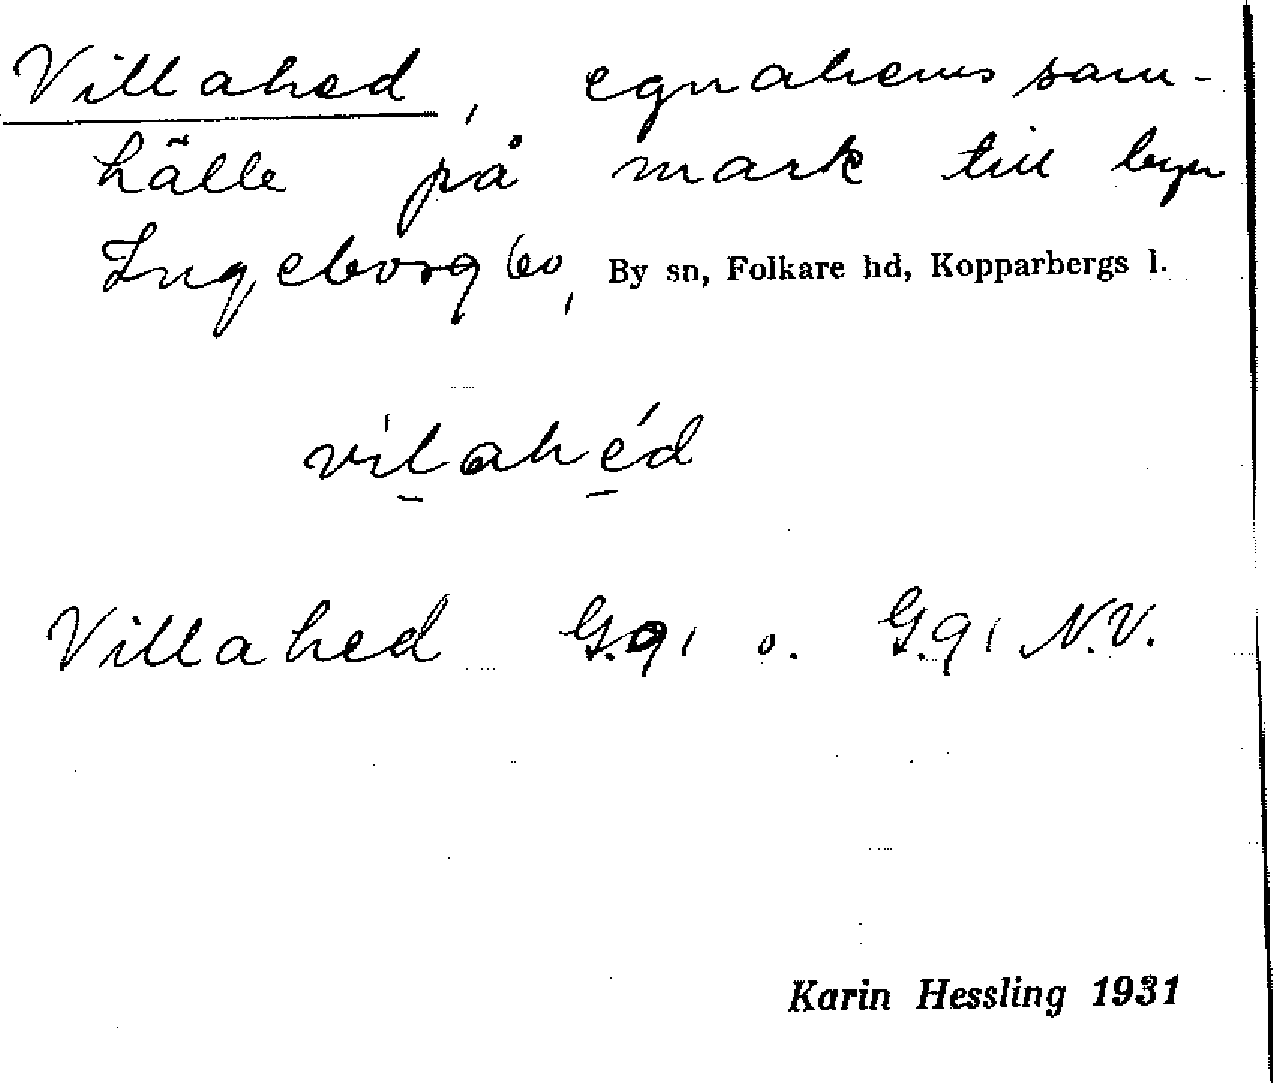 Villahed, egnahemssam-
hälle på mark till byn
Ingeborgbo, By sn, Folkare hd, Kopparbergs l.
vìlahéd
Villahed G.g. o. G.g. N.V.
Karin Hessling 1931